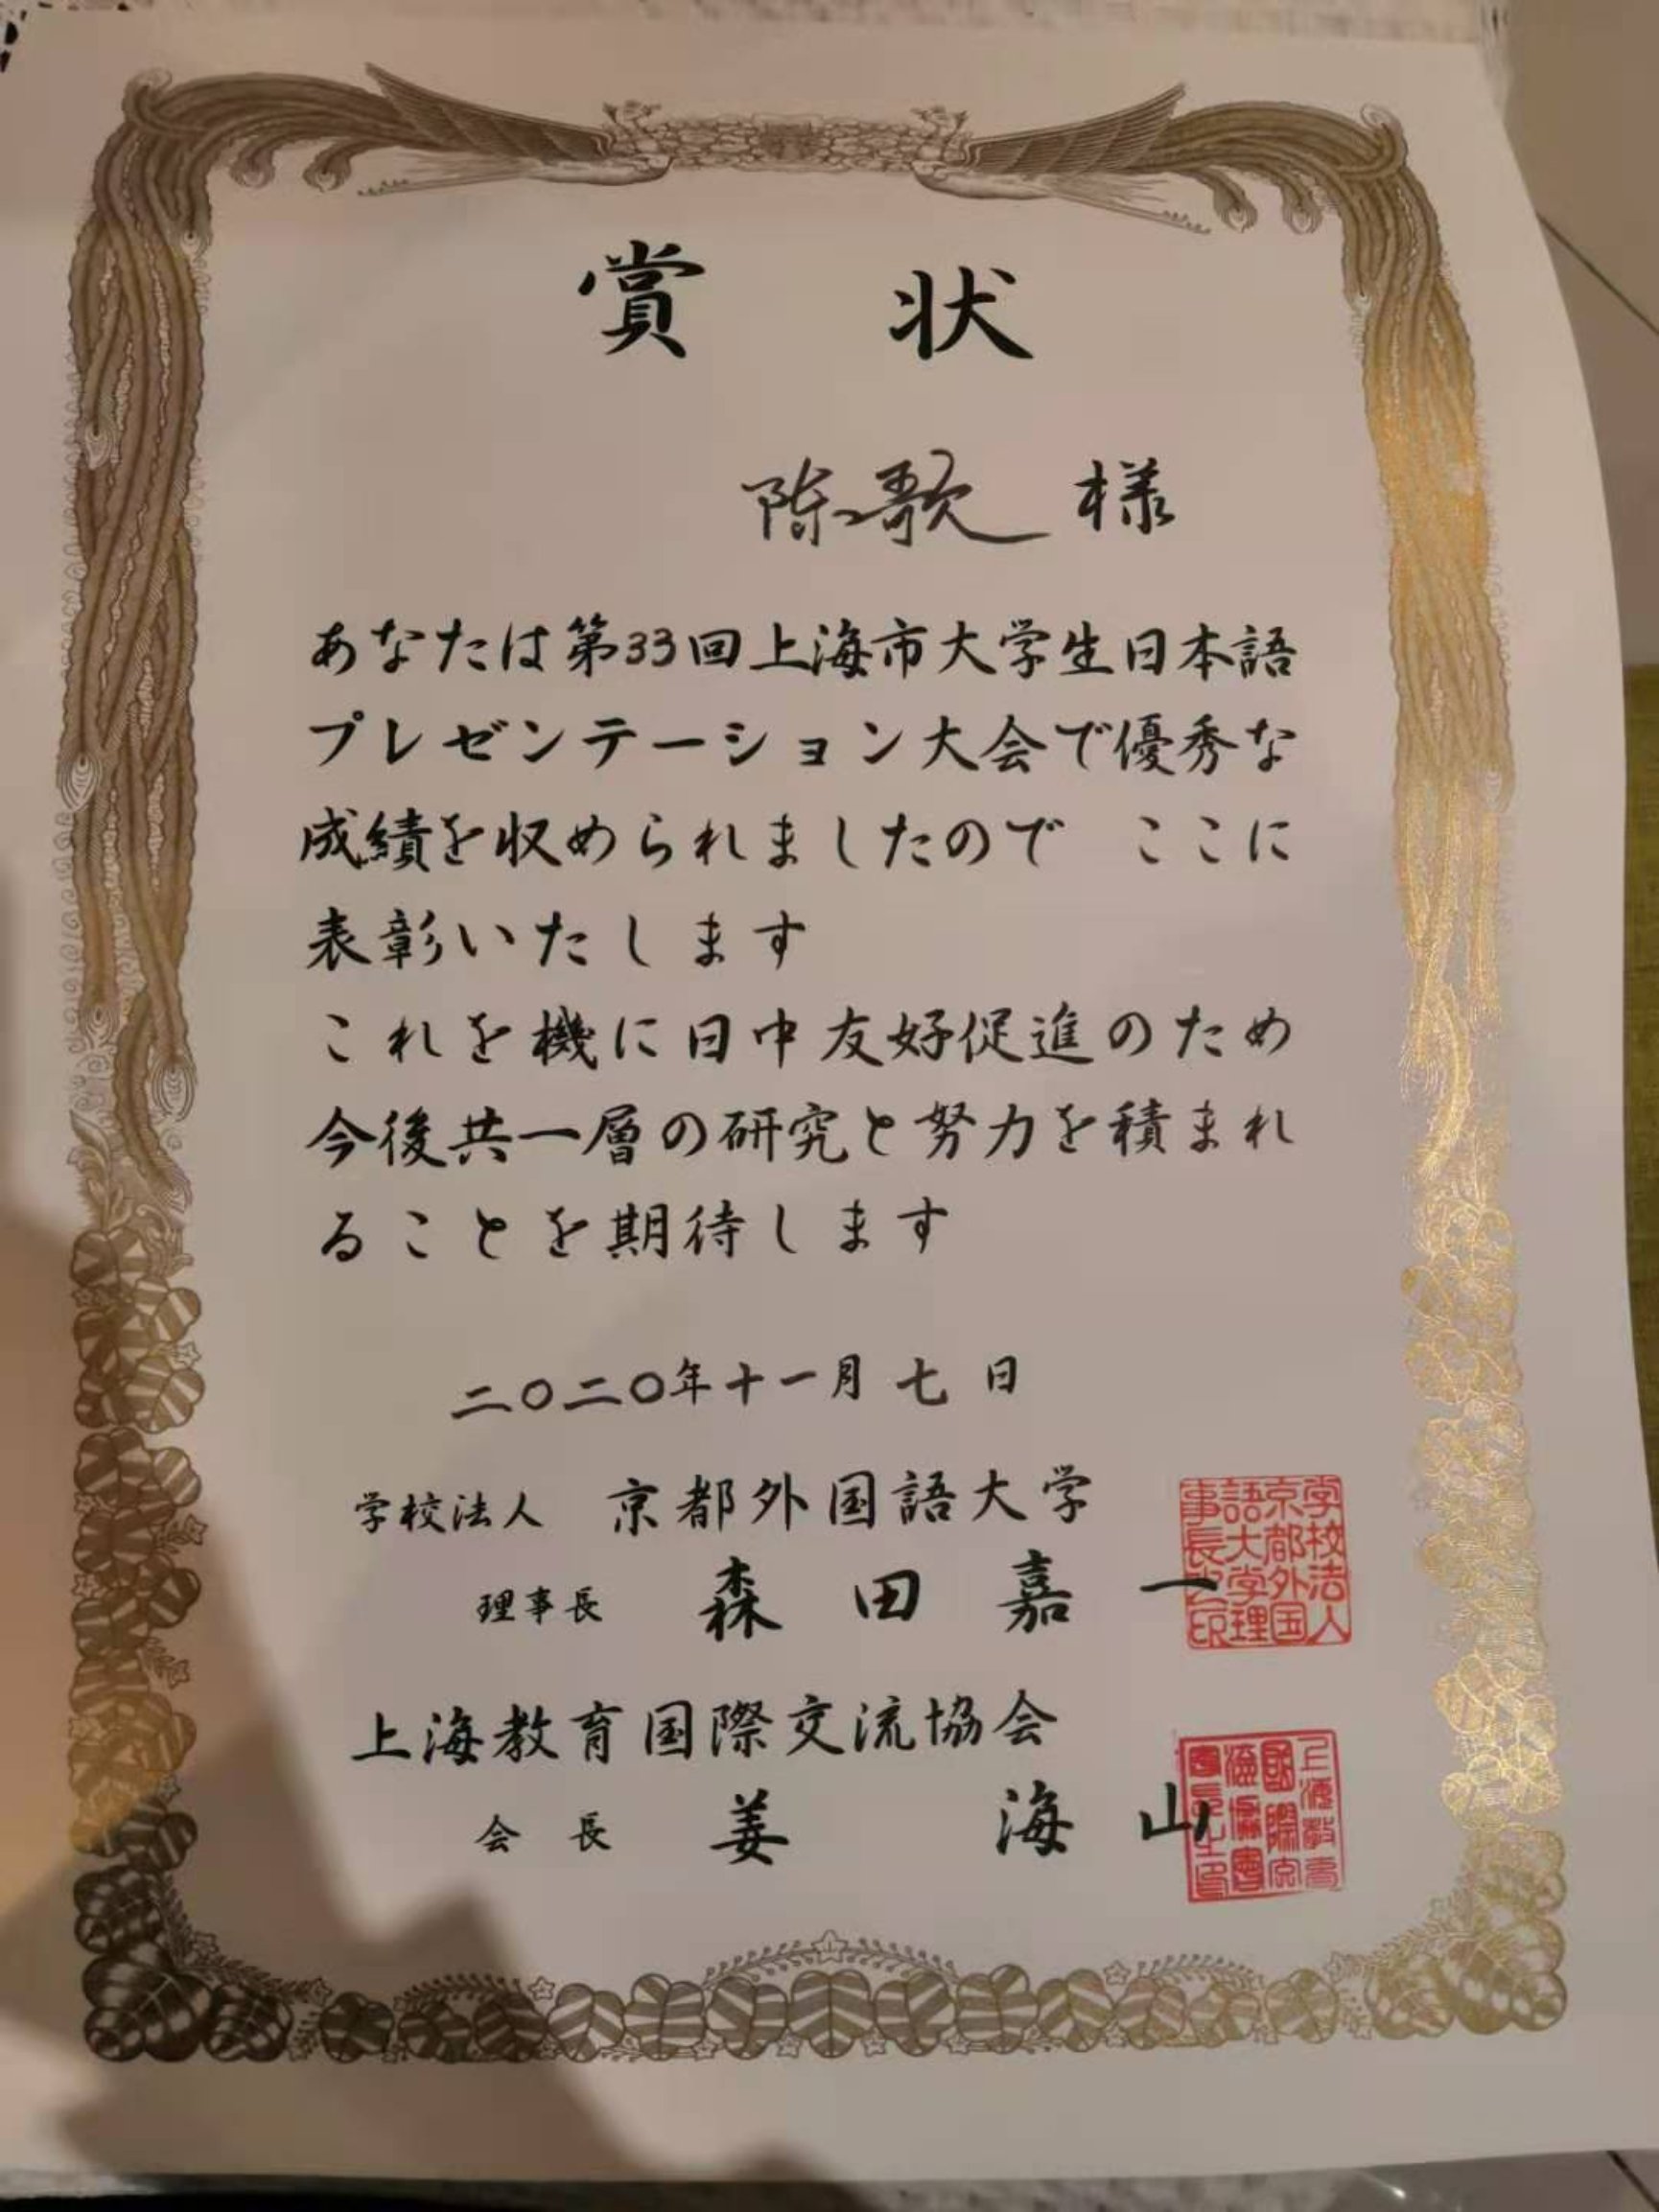 賞 状
陈歌 様
あなたは第33回上海市大学生日本語
プレゼンテーション大会で優秀な
成績を収められましたので ここに
表彰いたします
これを機に日中友好促進のため
今後共一層の研究と努力を積まれ
ることを期待します
二〇二〇年十一月七日
学校法人 京都外国語大学
理事長 森田嘉一
学校法人京都外国語大学理事長之印
上海教育国際交流協会
会長 姜海山